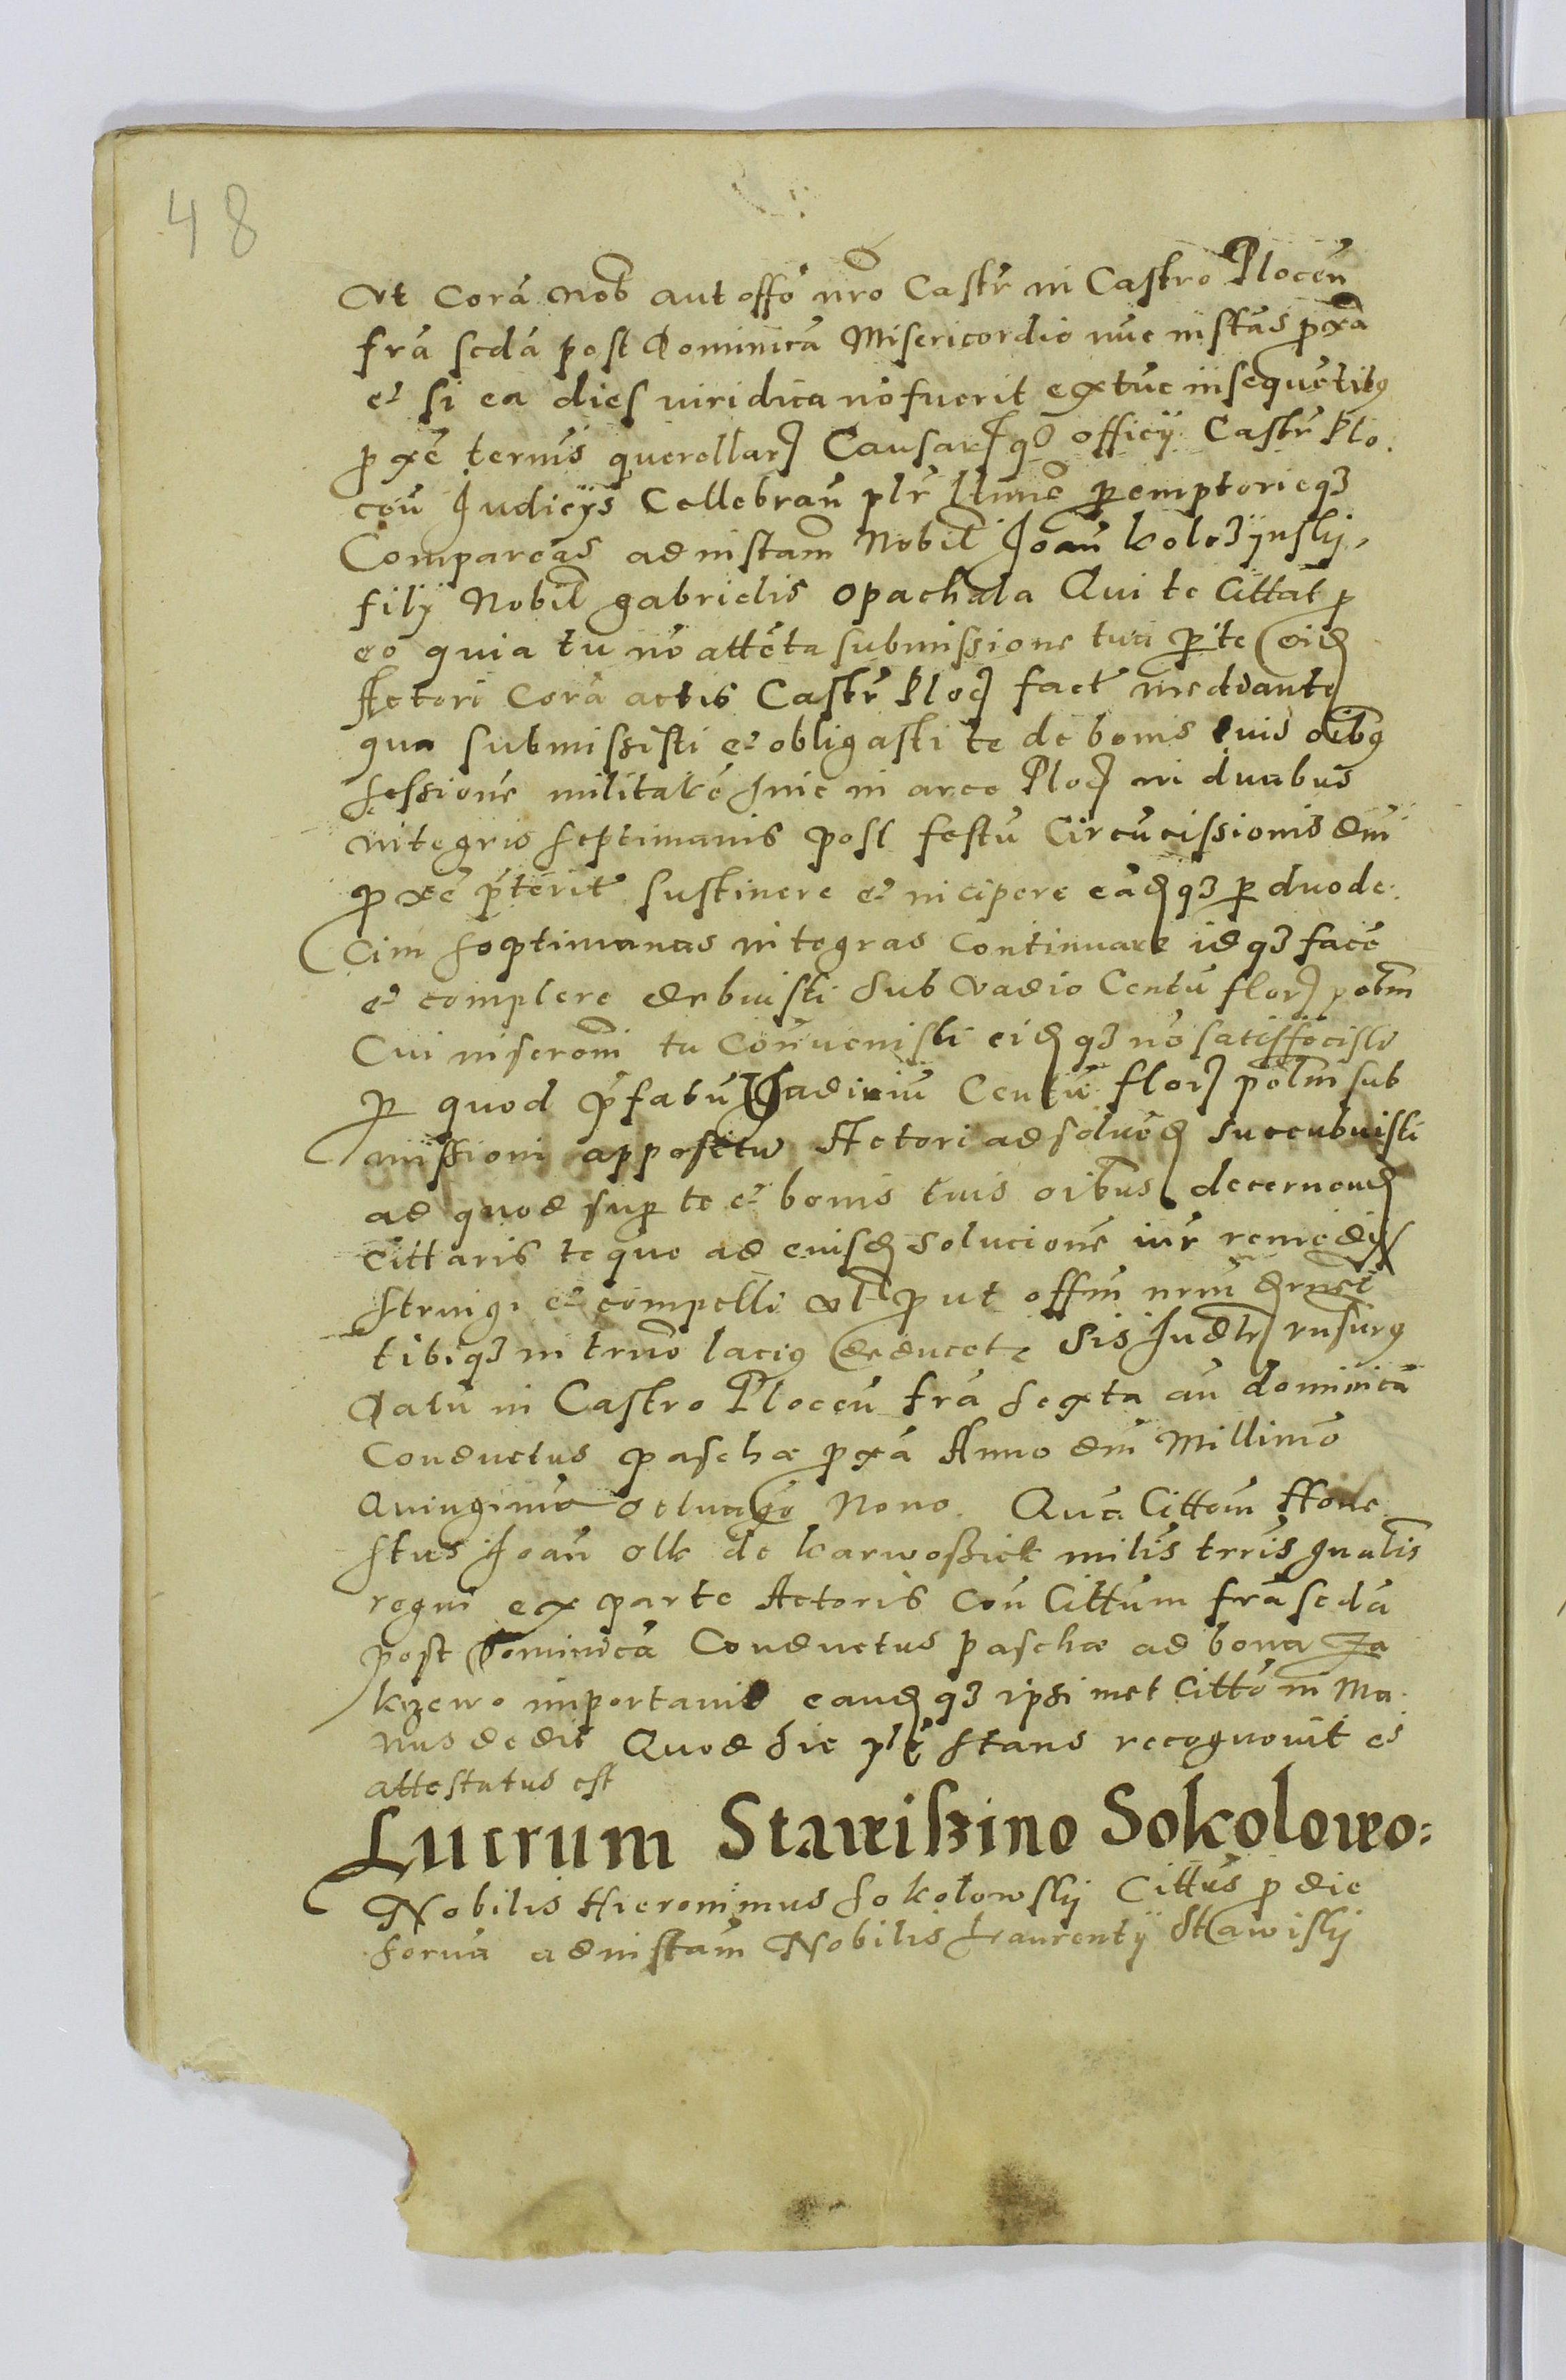 48
Vt corā nob aut offō nrō Castr in Castro Plocen̄
frā scdā post Dominicā Misericordie nūc instās p̱xā
et si ea dies iuridica nō fuerit extūc in sequētibq
p̱xē termīs querellarꝝ Causarꝝ qꝫ officij Castr Plo.
cen̄ Judicijs Cellebran̄ plr
p̱emptorieqꝫ
Compareas ad instam̄ Nobil Joan̄ kolozijnskij
filij Nobil gabrielis opachala Qui te Cittat p̱
eo quia tu nō attēta submissione tua p̱ te eid
Actori Corā actis Castr Ploc fact mediante
qua submissisti et obligasti te de bonis tuis oibq
sessionē militarē huic in arce Ploc in duabus
integris septimanis post festū Circūcissionis dm̄
p̱xē p̄terit sustinere et incipere eādqꝫ p̱ duode.
cim septimanas integras continuare idqꝫ facē
et complere debuisti sub vadio Centū florꝝ polm
Cui inseroni tu Contrāvenisti eidqꝫ nō satisffecisti
p̱ quod p̄fatū Vadium Centū florꝝ polm sub
missioni appositū Actori ad solvēd succubuisti
ad quod sup̱ te et bonis tuis oibus decernend
Cittaris te que ad eiusd solucionē iur remedijs
string. et compelli vl p̱ ut offm̄ nrm̄
tibiqꝫ in trno laciq deducet. Sis Judtr
Datū in Castro Plocen̄ frā sexta an̄ dominicā
Conductus paschæ p̱xā Anno dm̄ Millimō
Quingmō octuagō Nono. Quā Cittom̄ Hone
stus Joan̄ olk de karwoßiek milīs trris gnalis
regni ex parte Actoris con̄ Cittum frā scdā
post Dominicā Conductus paschæ ad bona za
krzewo importavit eandqꝫ ipsi met Cittō in Ma.
nus dedit Quod sic plr stans recognovit et
attestatus est
Lucrum Stawißino Sokolowo:
Nobilis Hieronimus Sokołowskij Cittus p̱ die
hernā ad instam̄ Nobilis Laurentij Stawiskij